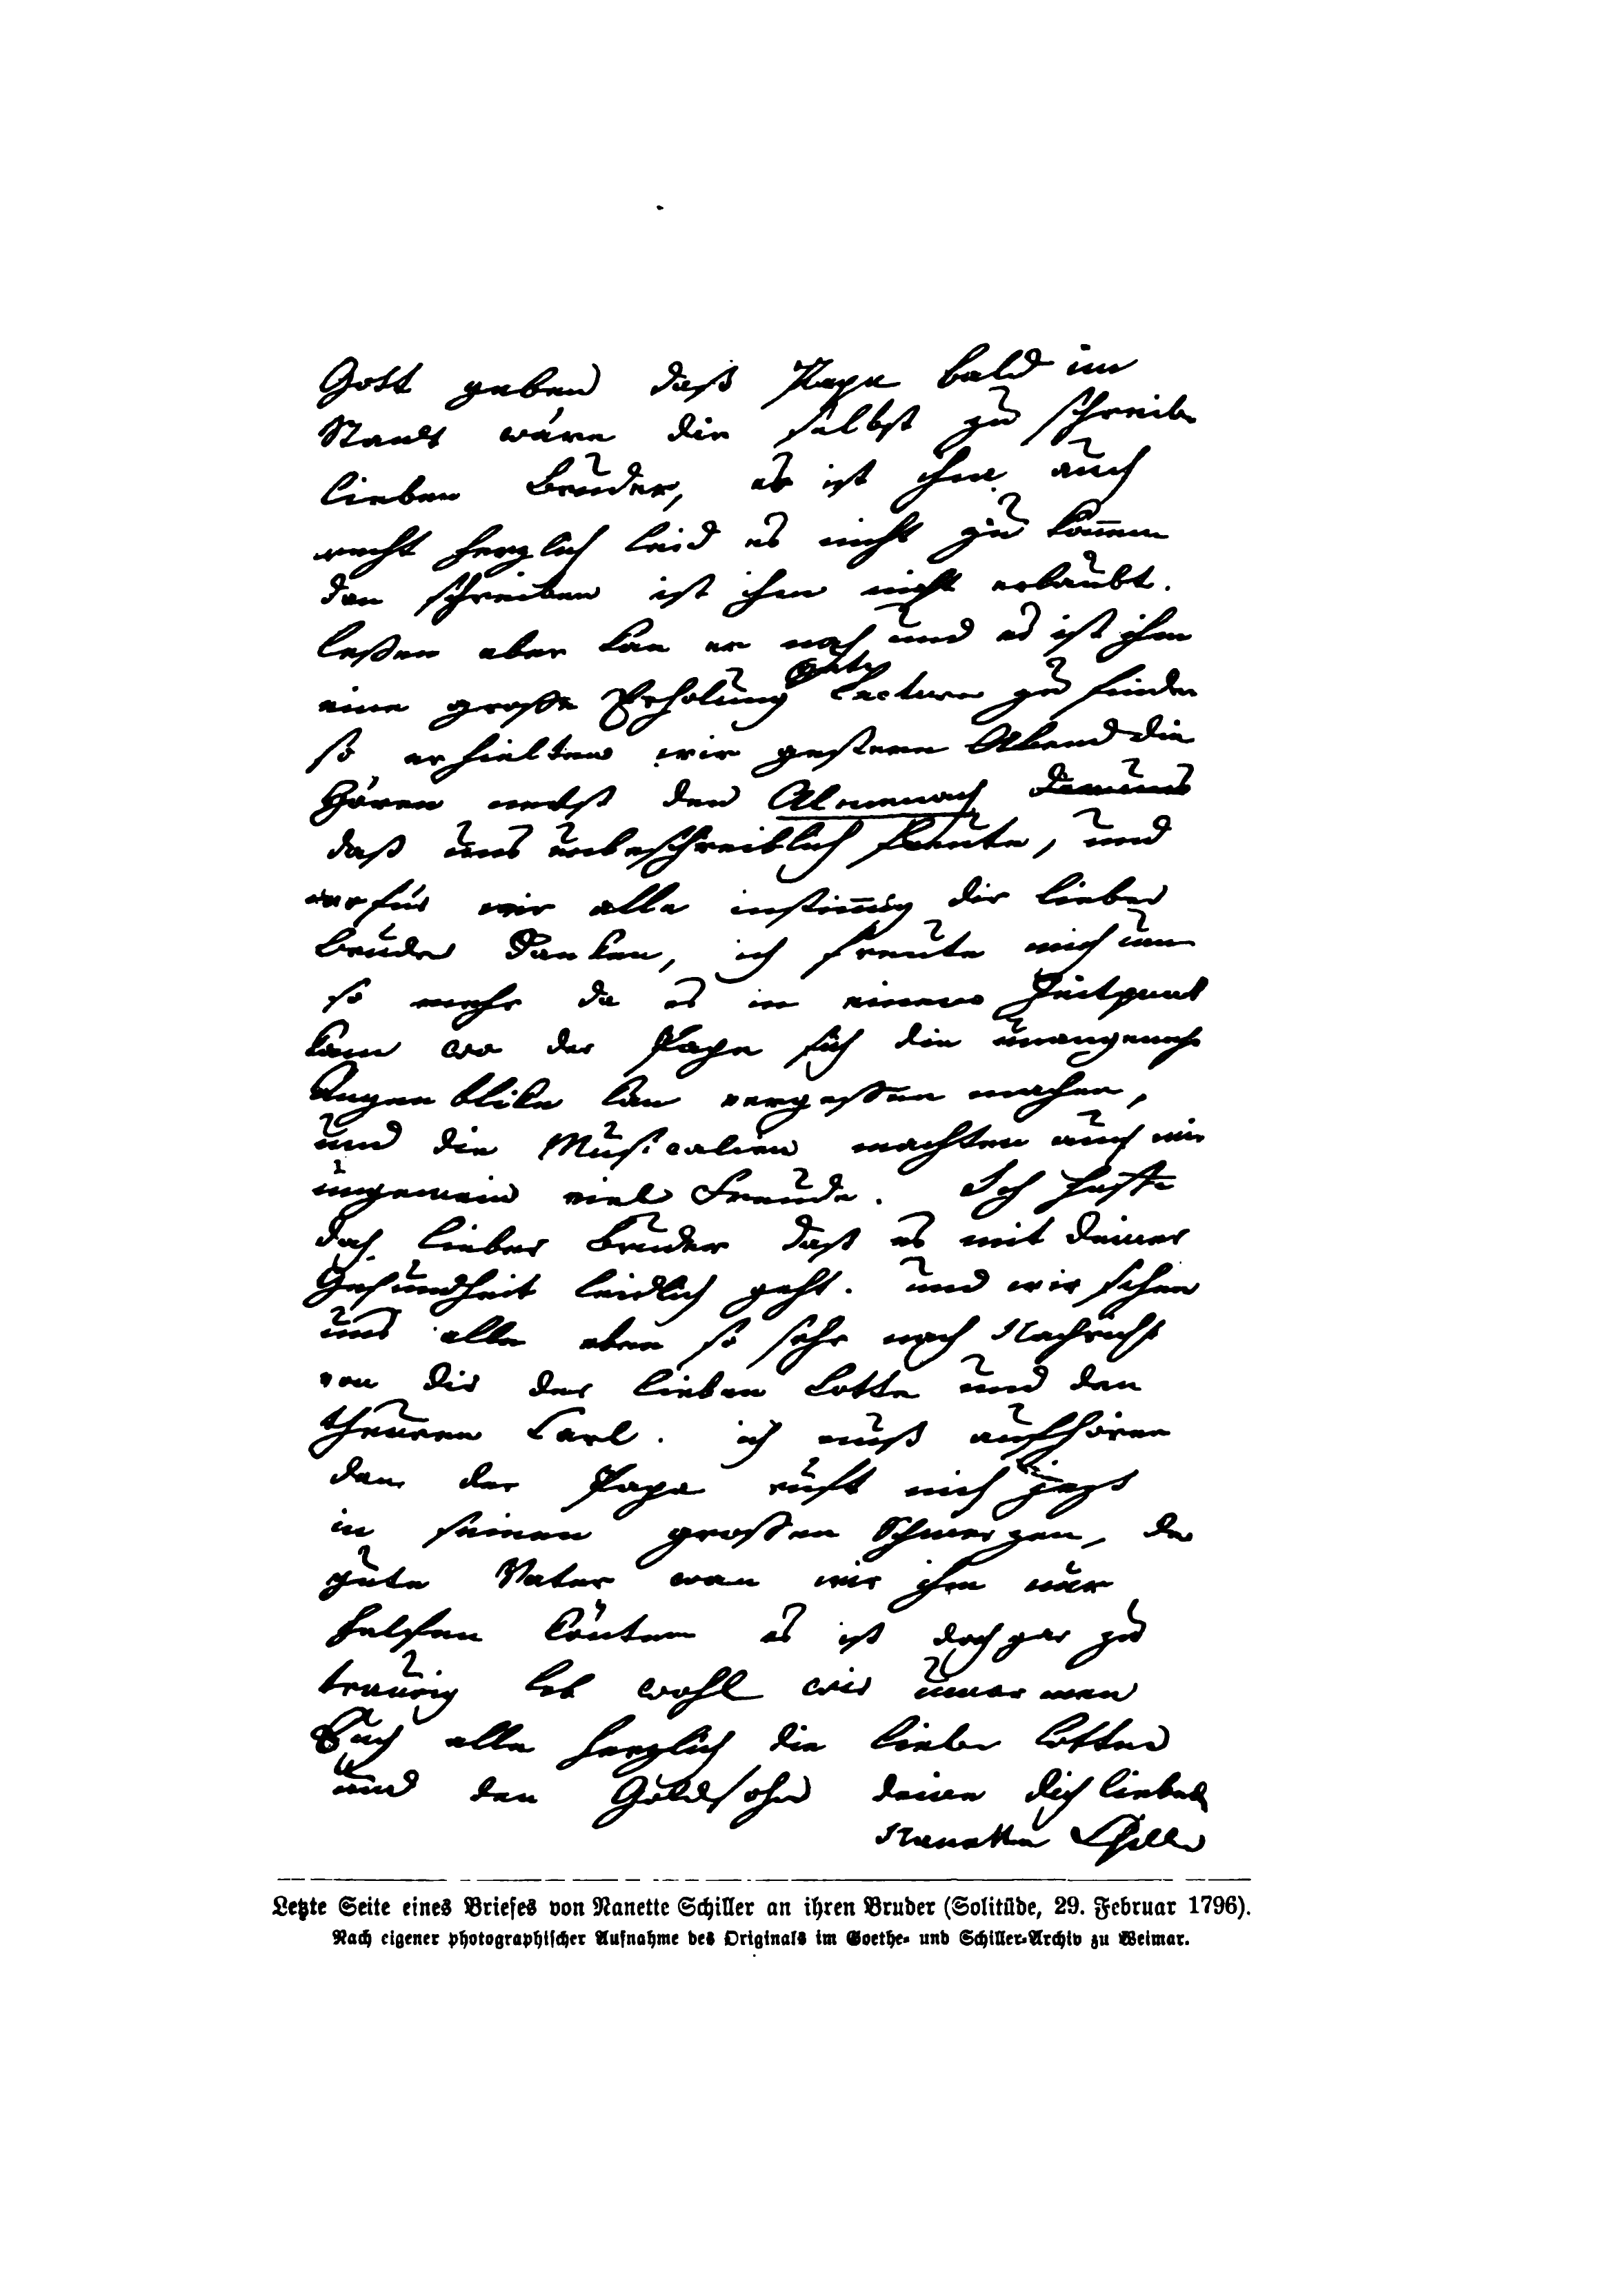 Gott geben daß Papa bald im
Stande wäre dir selbst zu schreiben
lieber Bruder, es ist ihm auch
recht herzlich leid es nicht zu können
den schreiben ist ihm nicht erlaubt.
leßen aber kan er noch und es ist ihm
eine große Erholung gute Lecture zu finden
so erhielten wir gestern Abend die
Horen nebst den Almanach
daß uns unbeschreiblich freute, und
worfür wir alle instimig dir lieber
Bruder Danken, ich freute mich um
so mehr da es in einem Zeitpunct
kam wo der Papa sich die unangenehme
Augenblike kan vergessen machen,
und die Musicalien machten auch mir
ungemein viel Freude. Ich hoffe
doch lieber Bruder daß es mit deiner
Gesundheit leidlich geht. und wir sehen
uns alle eben so sehr nach Nachricht
von dir der lieben Lotte und den
theuren Carl. ich muß aufhören
den der Papa ruft mich jezt
in seinen grossen Schmerzen, der
gute Vater wan wir ihm nur
helfen könten es ist doch gar zu
traurig leb wohl wir umarmen
Euch alle herzlich die liebe Lotte
und den Goldsohn deine dich liebende
Nanette Schiller
Letzte Seite eines Briefes von Nanette Schiller an ihren Bruder (Solitüde, 29. Februar 1796).
Nach eigener photographischer Aufnahme des Originals im Goethe- und Schiller-Archiv zu Weimar.